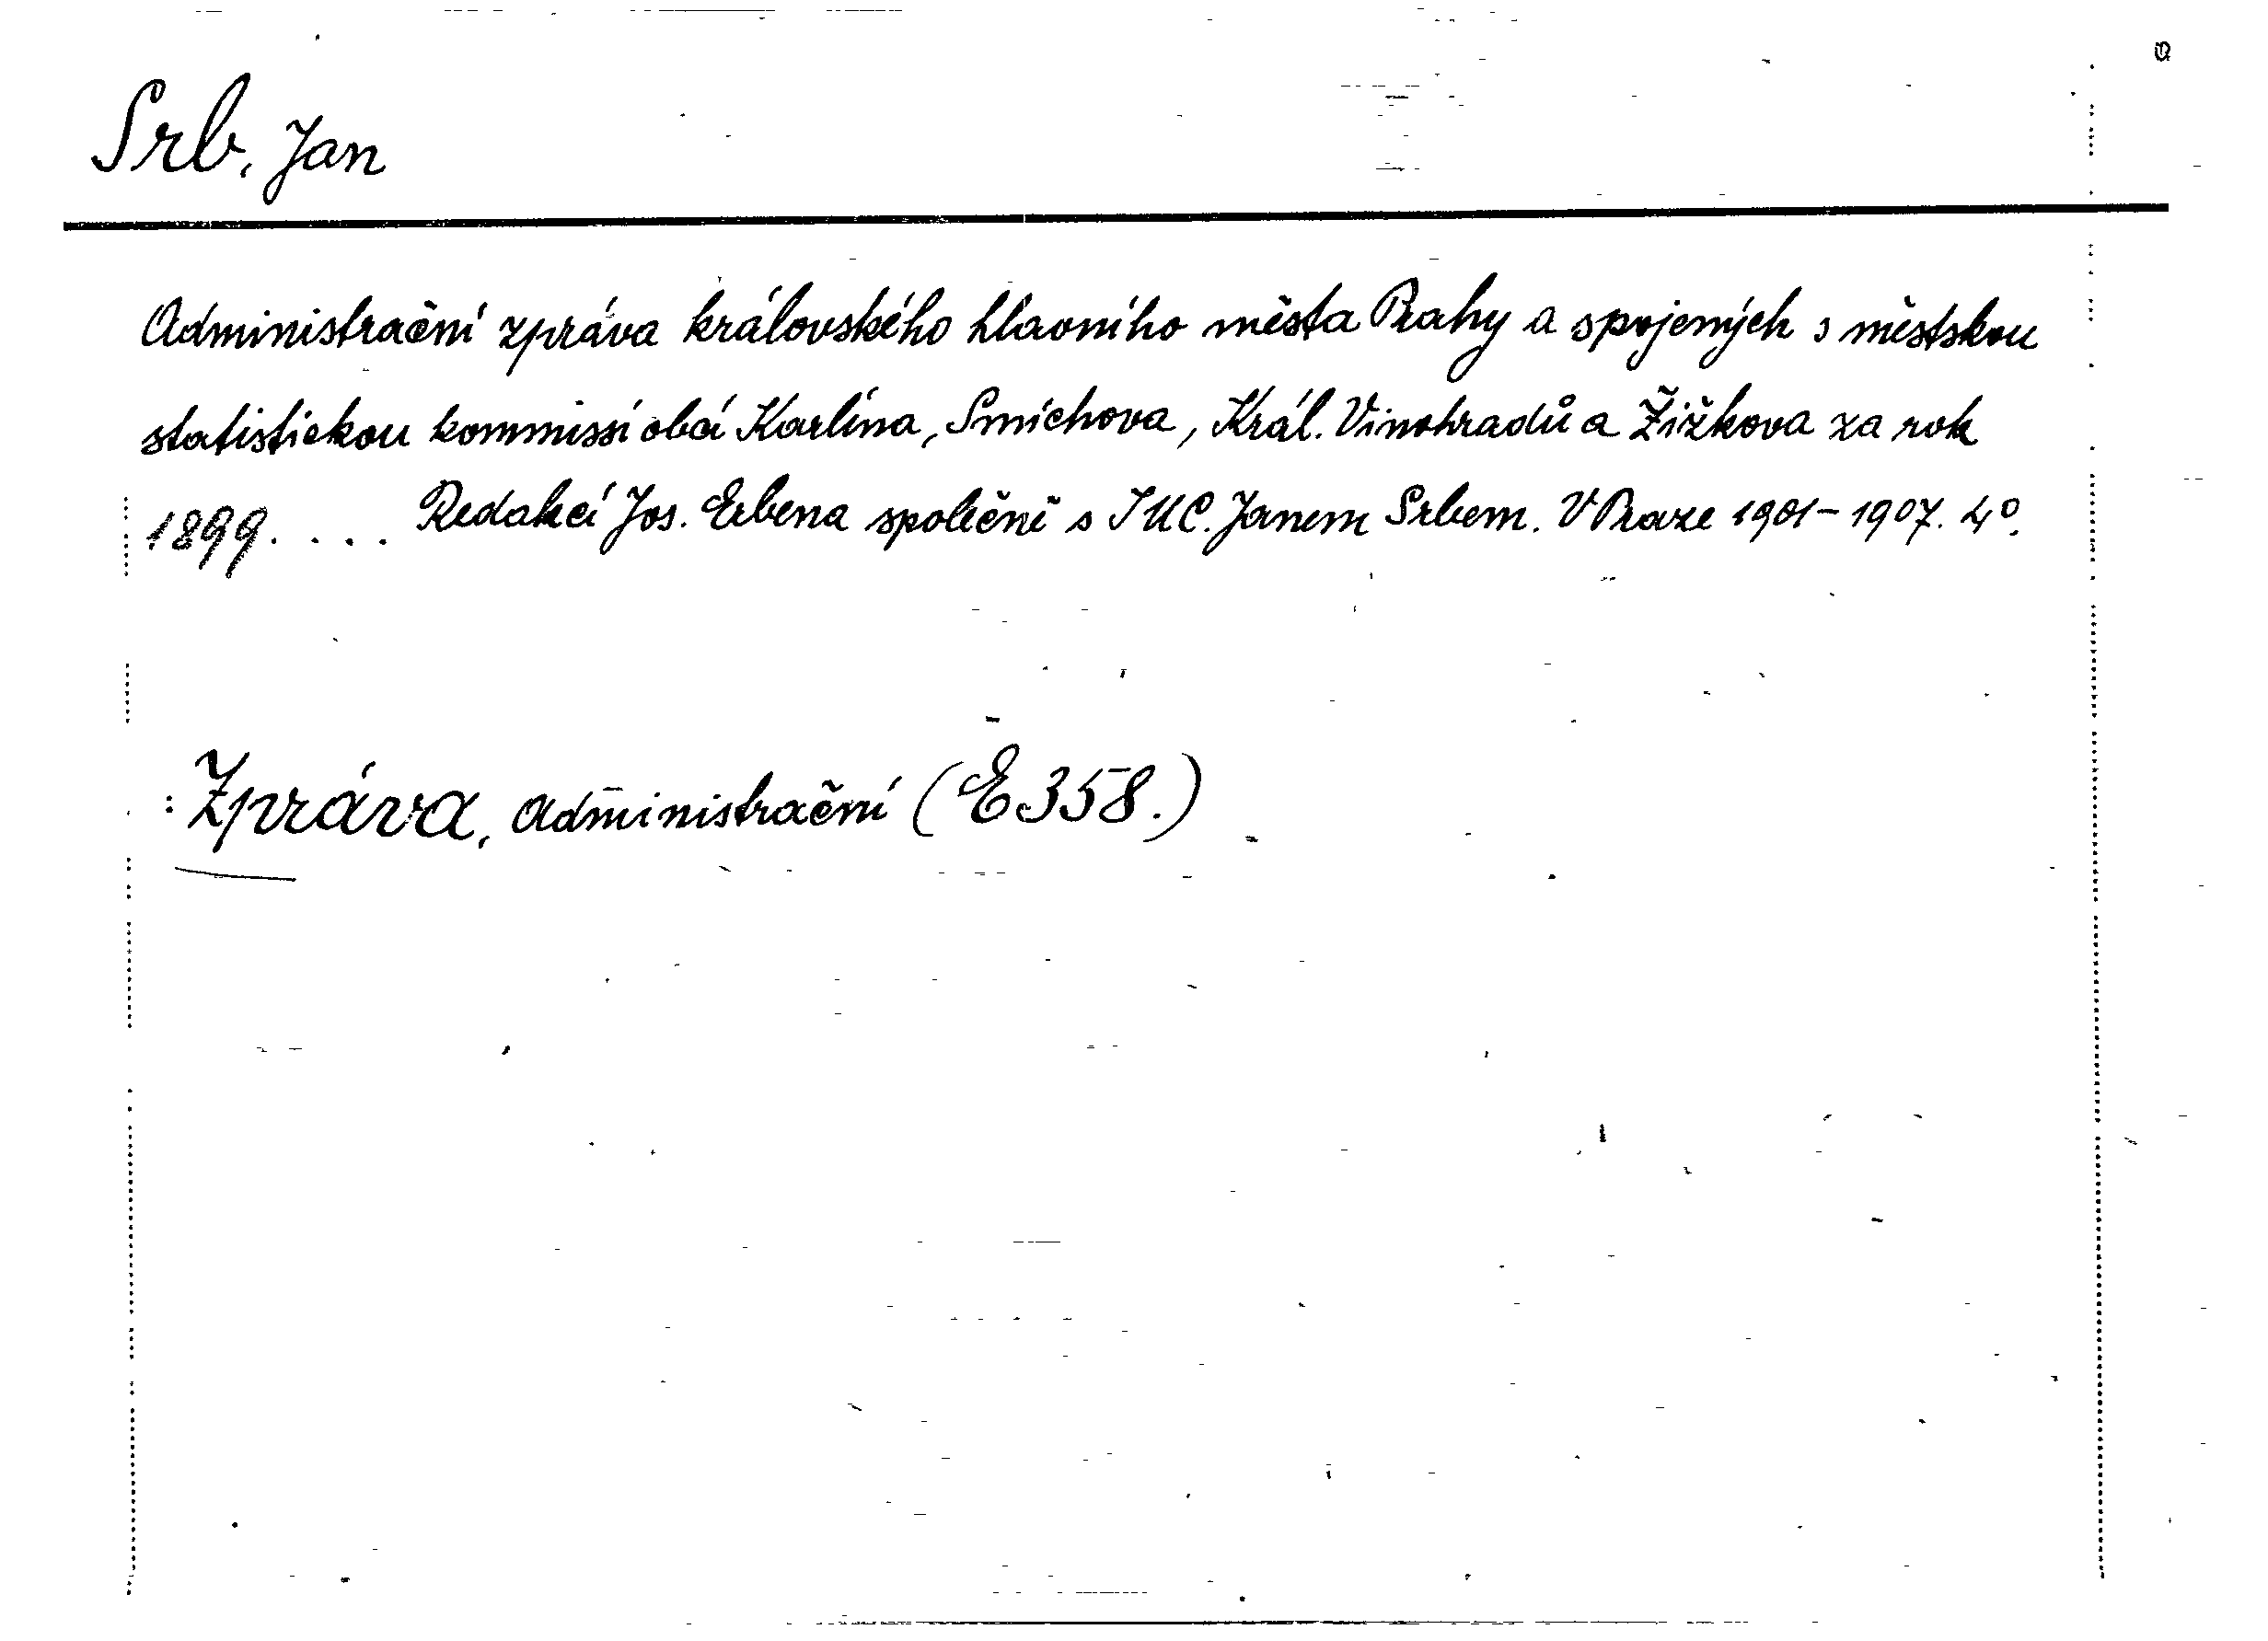 Srb, Jan
Administrační zpráva královského hlavního města Prahy a spojených s městskou
statistickou kommissí obcí Karlína, Smíchova, Král. Vinohradů a Žižkova za rok
1899. . . . Redakcí Jos. Erbena společně s JUC. Janem Srbem. V Praze 1901-1907. 4°.
: Zpráva, administrační (E 358.)